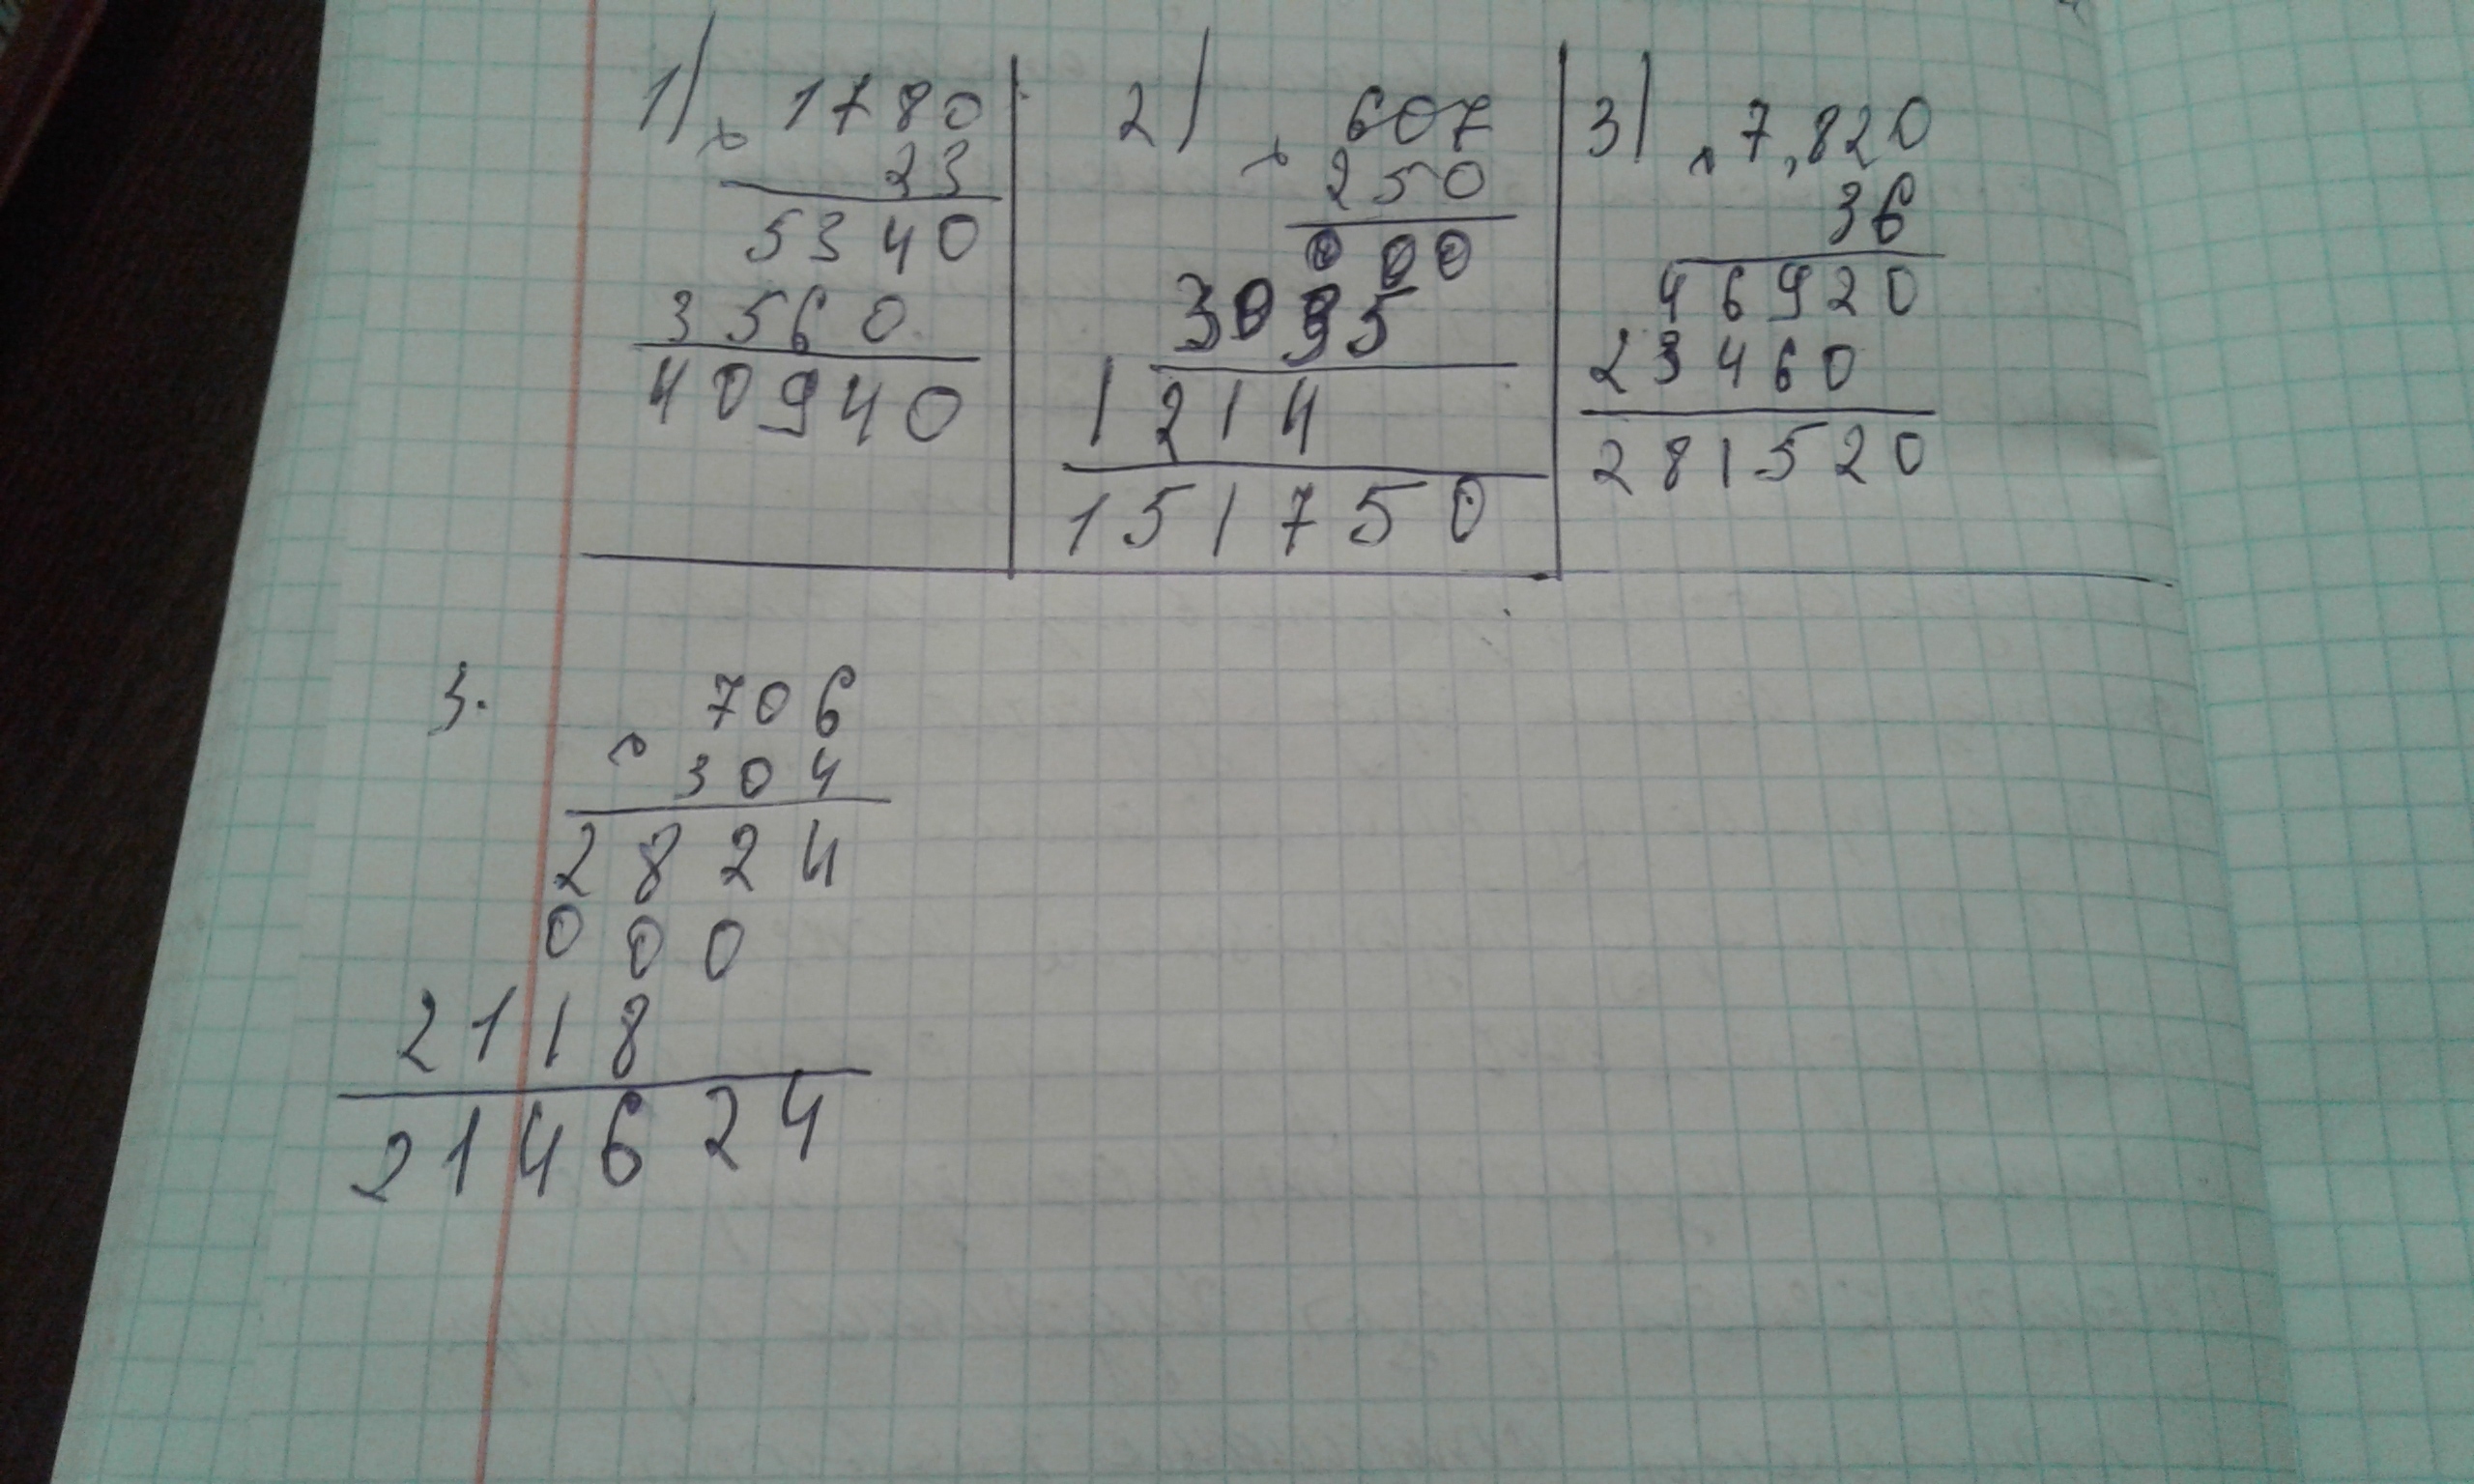 1) × 1780
23
5340
3560
40940
2) × 607
250
000
3035
1214
151750
3) × 7,820
36
46920
23460
281520
3. 706
× 304
2824
000
2118
214624